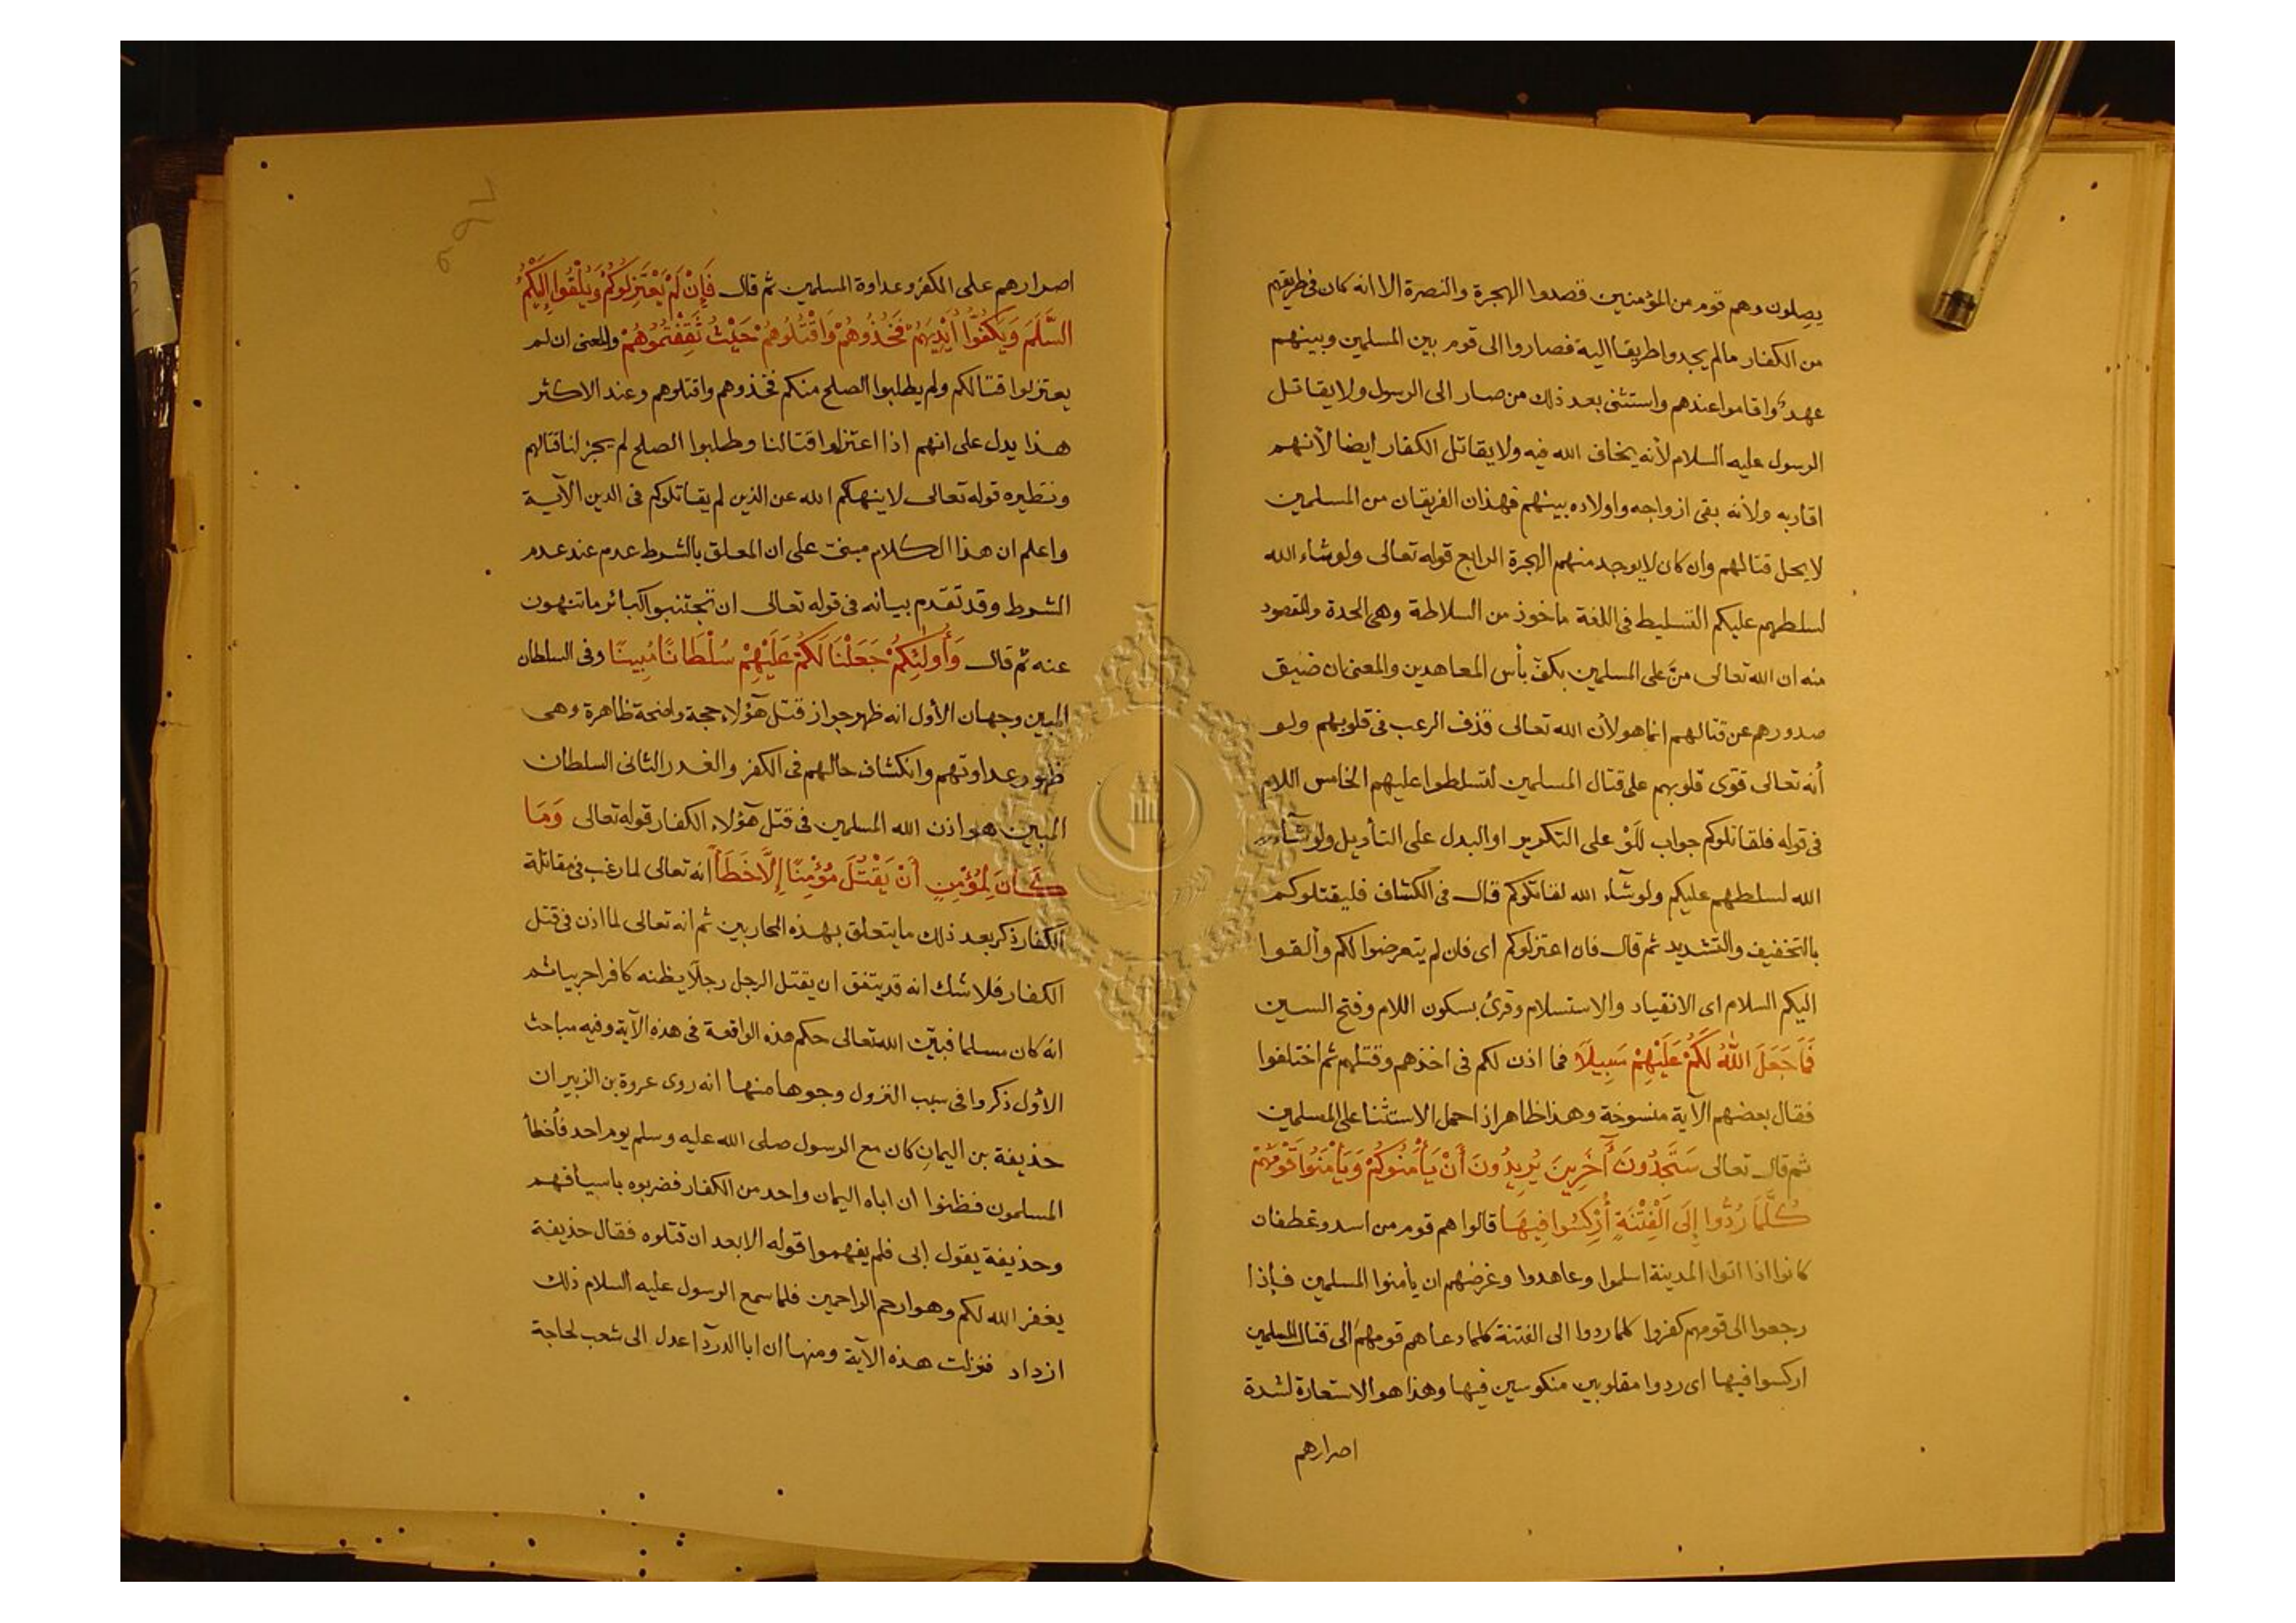 يصلون وهم قوم من المؤمنين قصدوا الهجرة والنصرة الا انه كان فى طريقهم
من الكفار مالم يجدوا طريقا اليه فصاروا الى قوم بين المسلمين وبينهم
عهد واقاموا عندهم واستثنى بعد ذلك من صار الى الرسول ولا يقاتل
الرسول عليه السلام لأنه يخاف الله فيه ولا يقاتل الكفار ايضا لأنهم
اقاربه ولأنه بقى ازواجه واولاده بينهم فهذان الفريقان من المسلمين
لا يحل قتالهم وان كان لا يوجد منهم الهجرة الرابع قوله تعالى ولو شاء الله
لسلطهم عليكم التسليط فى اللغة ماخوذ من السلاطة وهى الحدة والمقصود
منه ان الله تعالى منَّ على المسلمين بكفّ بأس المعاهدين والمعنى ان ضيق
صدورهم عن قتالهم انما هو لأن الله تعالى قذف الرعب فى قلوبهم ولو
أنه تعالى قوّى قلوبهم على قتال المسلمين لتسلطوا عليهم الخامس اللام
فى قوله فلقاتلوكم جواب للَوْ على التكرير او البدل على التأويل ولو شآء
الله لسلطهم عليكم ولو شآء الله لقاتلوكم قال فى الكشاف فليقتلوكم
بالتخفيف والتشديد ثم قال فان اعتزلوكم اى فان لم يتعرضوا لكم وألقوا
اليكم السلام اى الانقياد والاستسلام وقرئ بسكون اللام وفتح السين
فَمَا جَعَلَ اللّٰهُ لَكُمْ عَلَيْهِمْ سَبِيلًا فما اذن لكم فى اخذهم وقتلهم ثم اختلفوا
فقال بعضهم الآية منسوخة وهذا ظاهر اذا حمل الاستثنا على المسلمين
ثم قال تعالى سَتَجِدُونَ آخَرِينَ يُرِيدُونَ أَنْ يَأْمَنُوكُمْ وَيَأْمَنُوا قَوْمَهُمْ
كُلَّمَا رُدُّوا إِلَى الْفِتْنَةِ أُرْكِسُوا فِيهَا قالوا هم قوم من اسد وغطفان
كانوا اذا اتوا المدينة اسلموا وعاهدوا وغرضهم ان يأمنوا المسلمين فإذا
رجعوا الى قومهم كفروا كلما ردوا الى الفتنة كلما دعاهم قومهم الى قتال المسلمين
اركسوا فيها اى ردوا مقلوبين منكوسين فيها وهذا هو الاستعارة لشدة
اصرارهم
اصرارهم على الكفر وعداوة المسلمين ثم قال فَإِنْ لَمْ يَعْتَزِلُوكُمْ وَيُلْقُوا إِلَيْكُمُ
السَّلَمَ وَيَكُفُّوا أَيْدِيَهُمْ فَخُذُوهُمْ وَاقْتُلُوهُمْ حَيْثُ ثَقِفْتُمُوهُمْ والمعنى ان لم
يعتزلوا قتالكم ولم يطلبوا الصلح منكم فخذوهم واقتلوهم وعند الاكثر
هذا يدل على انهم اذا اعتزلوا قتالنا وطلبوا الصلح لم يجز لنا قتالهم
ونظيره قوله تعالى لا ينهاكم الله عن الذين لم يقاتلوكم فى الدين الآية
واعلم ان هذا الكلام مبنى على ان المعلق بالشرط عدم عند عدم
الشرط وقد تقدم بيانه فى قوله تعالى ان تجتنبوا كبائر ما تنهون
عنه ثم قال وَأُولٰئِكُمْ جَعَلْنَا لَكُمْ عَلَيْهِمْ سُلْطَانًا مُبِينًا وفى السلطان
المبين وجهان الأول انه ظهر جواز قتل هؤلاء حجة واضحة ظاهرة وهى
ظهور عداوتهم وانكشاف حالهم فى الكفر والغدر الثانى السلطان
المبين هو اذن الله المسلمين فى قتل هؤلاء الكفار قوله تعالى وَمَا
كَانَ لِمُؤْمِنٍ أَنْ يَقْتُلَ مُؤْمِنًا إِلَّا خَطَأً انه تعالى لما رغب فى مقاتلة
الكفار ذكر بعد ذلك ما يتعلق بهذه المحاربين ثم انه تعالى لما اذن فى قتل
الكفار فلا شك انه قد يتفق ان يقتل الرجل رجلا يظنه كافرا حربيا ثم
انه كان مسلما فبيّن الله تعالى حكم هذه الواقعة فى هذه الآية وفيه مباحث
الأول ذكروا فى سبب النزول وجوها منها انه روى عروة بن الزبير ان
حذيفة بن اليمان كان مع الرسول صلى الله عليه وسلم يوم احد فأخطأ
المسلمون فظنوا ان اباه اليمان واحد من الكفار فضربوه باسيافهم
وحذيفة يقول إبى فلم يفهموا قوله الا بعد ان قتلوه فقال حذيفة
يغفر الله لكم وهو ارحم الراحمين فلما سمع الرسول عليه السلام ذلك
ازداد فنزلت هذه الآية ومنها ان ابا الدرآ اعدل الى شعب لحاجة